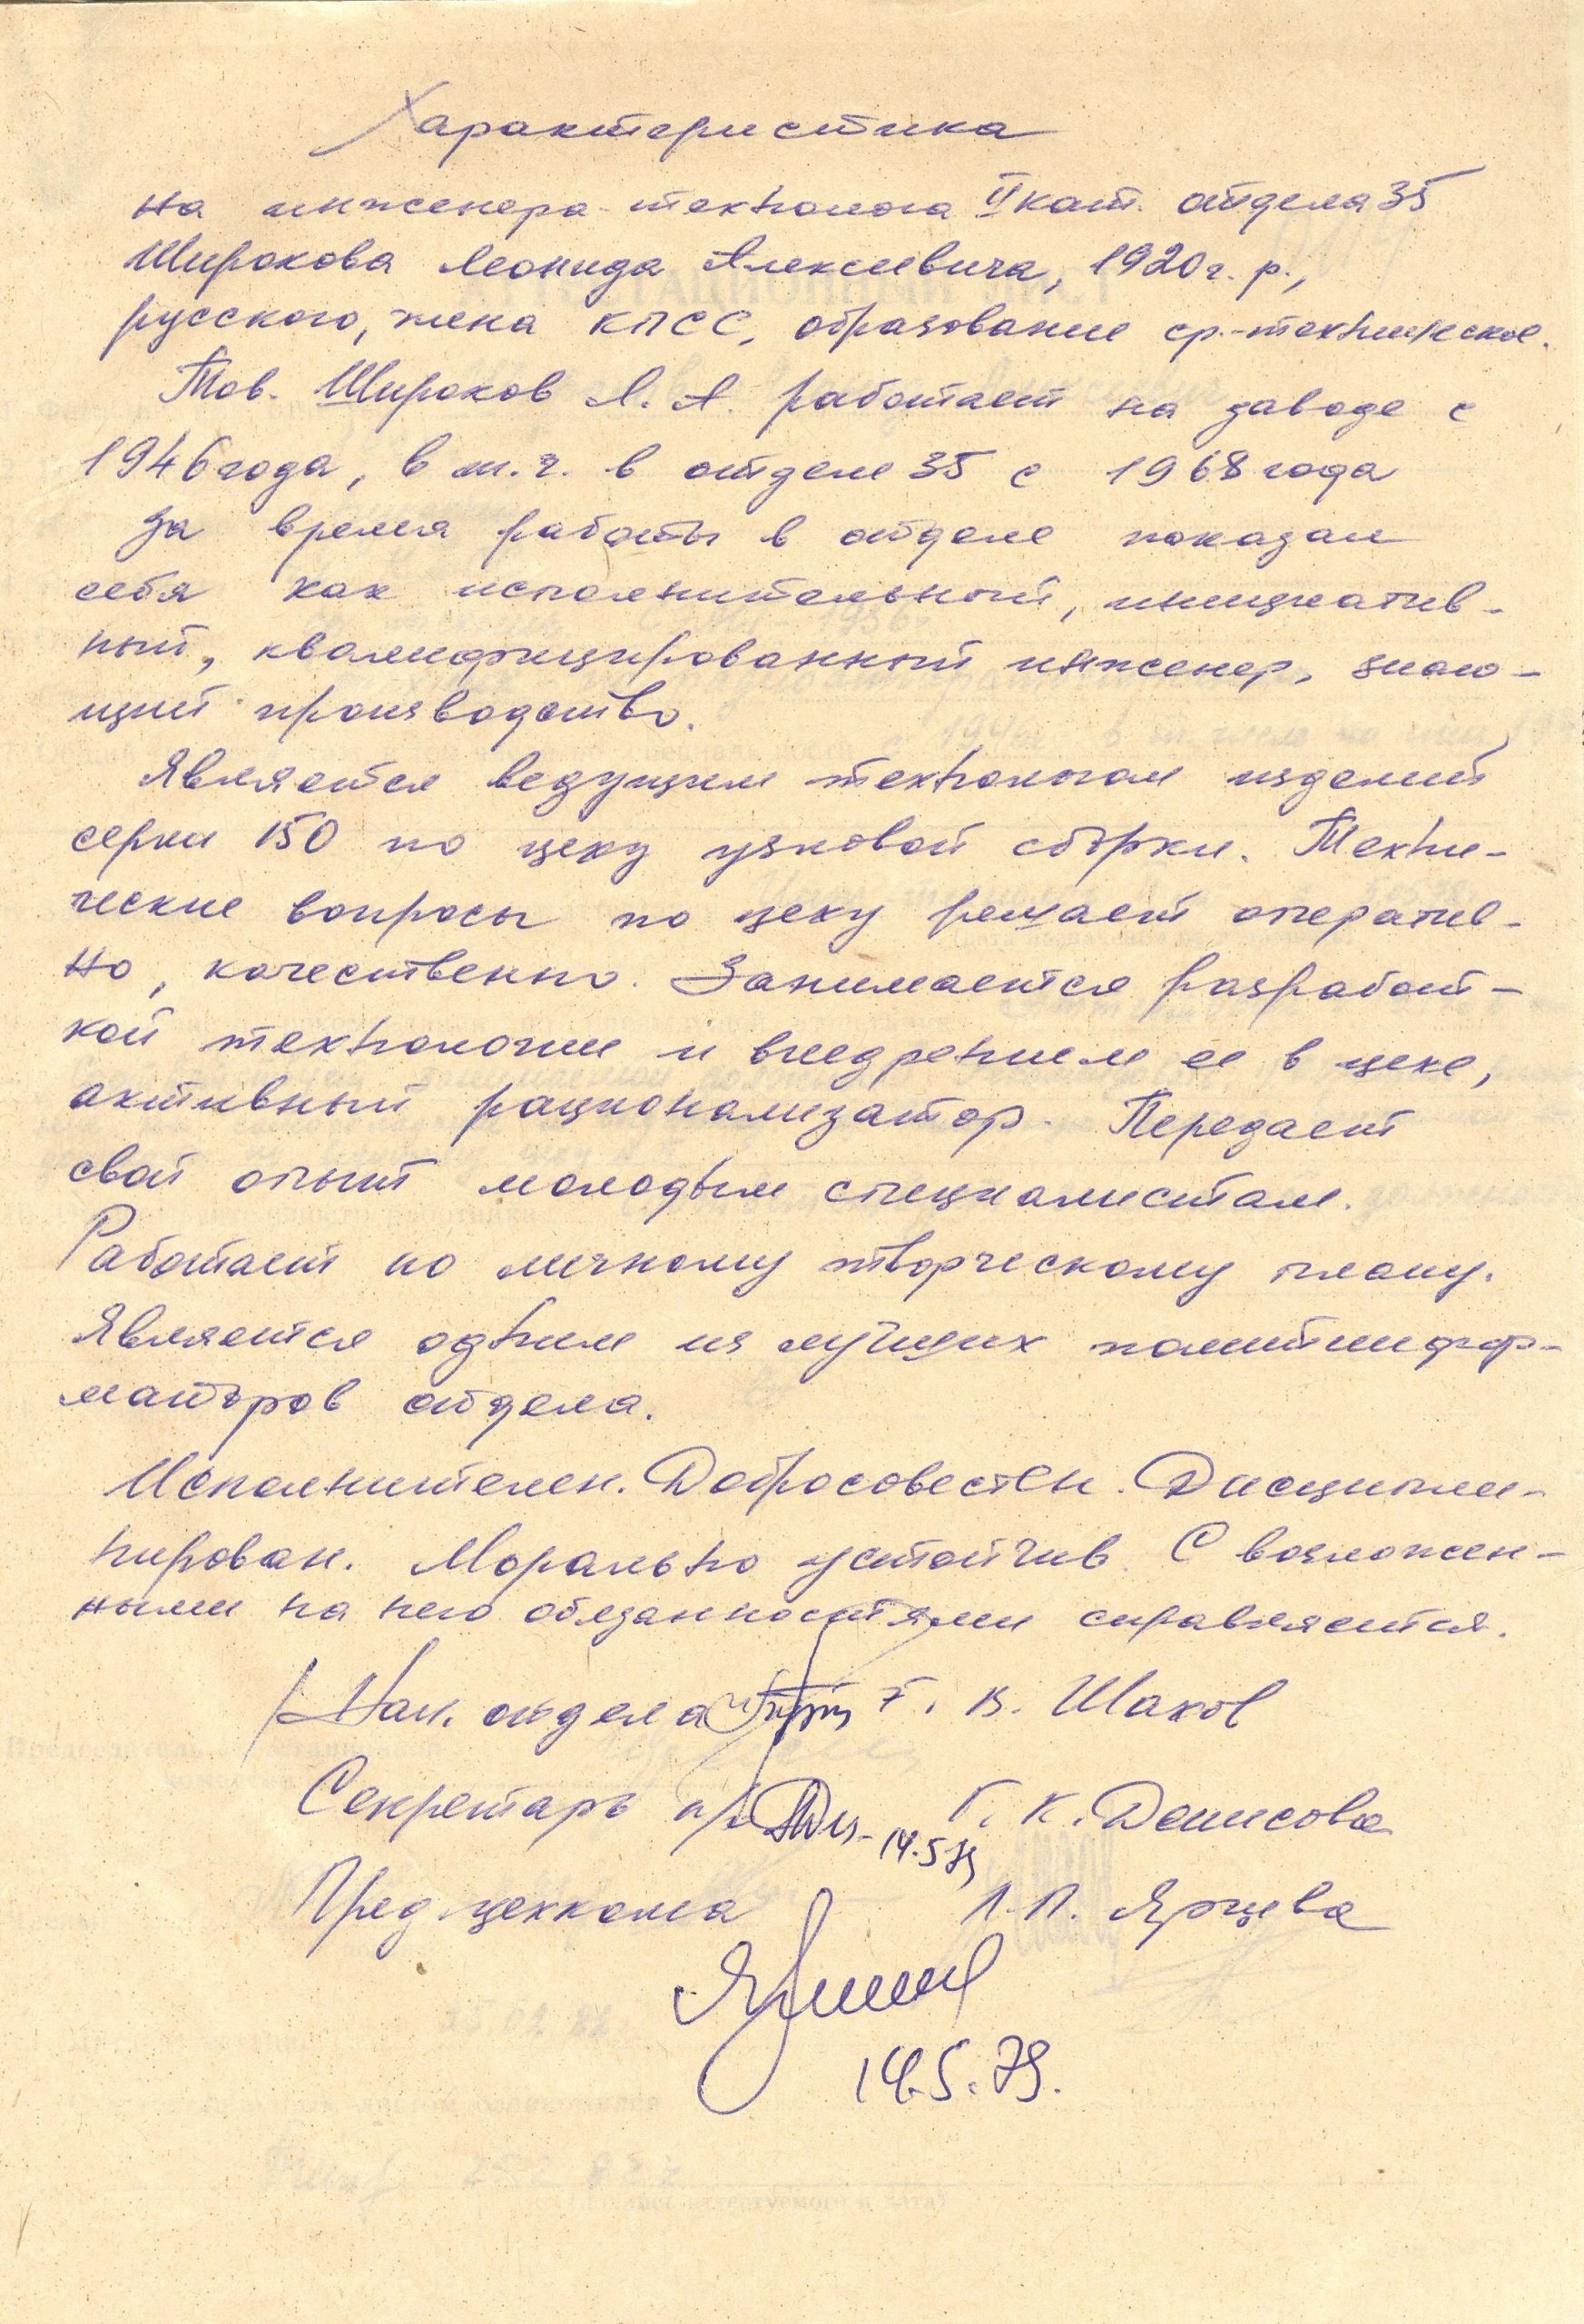 Характеристика
на инженера-технолога II кат. отдела 35
Широкова Леонида Алексеевича, 1920 г. р.,
русского, члена КПСС, образование ср.-техническое.
Тов. Широков Л. А. работает на заводе с
1946 года, в т. ч. в отделе 35 с 1968 года
За время работы в отделе показал
себя как исполнительный, инициатив-
ный, квалифицированный инженер, знаю-
щий производство.
Является ведущим технологом изделий
серии 150 по цеху узловой сборки. Техни-
ческие вопросы по цеху решает оператив-
но, качественно. Занимается разработ-
кой технологии и внедрением ее в цехе,
активный рационализатор. Передает
свой опыт молодым специалистам.
Работает по личному творческому плану.
Является одним из лучших политинфор-
маторов отдела.
Исполнителен. Добросовестен. Дисципли-
нирован. Морально устойчив. С возложен-
ными на него обязанностями справляется.
Нач. отдела Г. В. Шахов
Секретарь п/ Г. К. Денисова
14.5.79
Пред. цехкома Л. П. Ярцева
14.5.79.